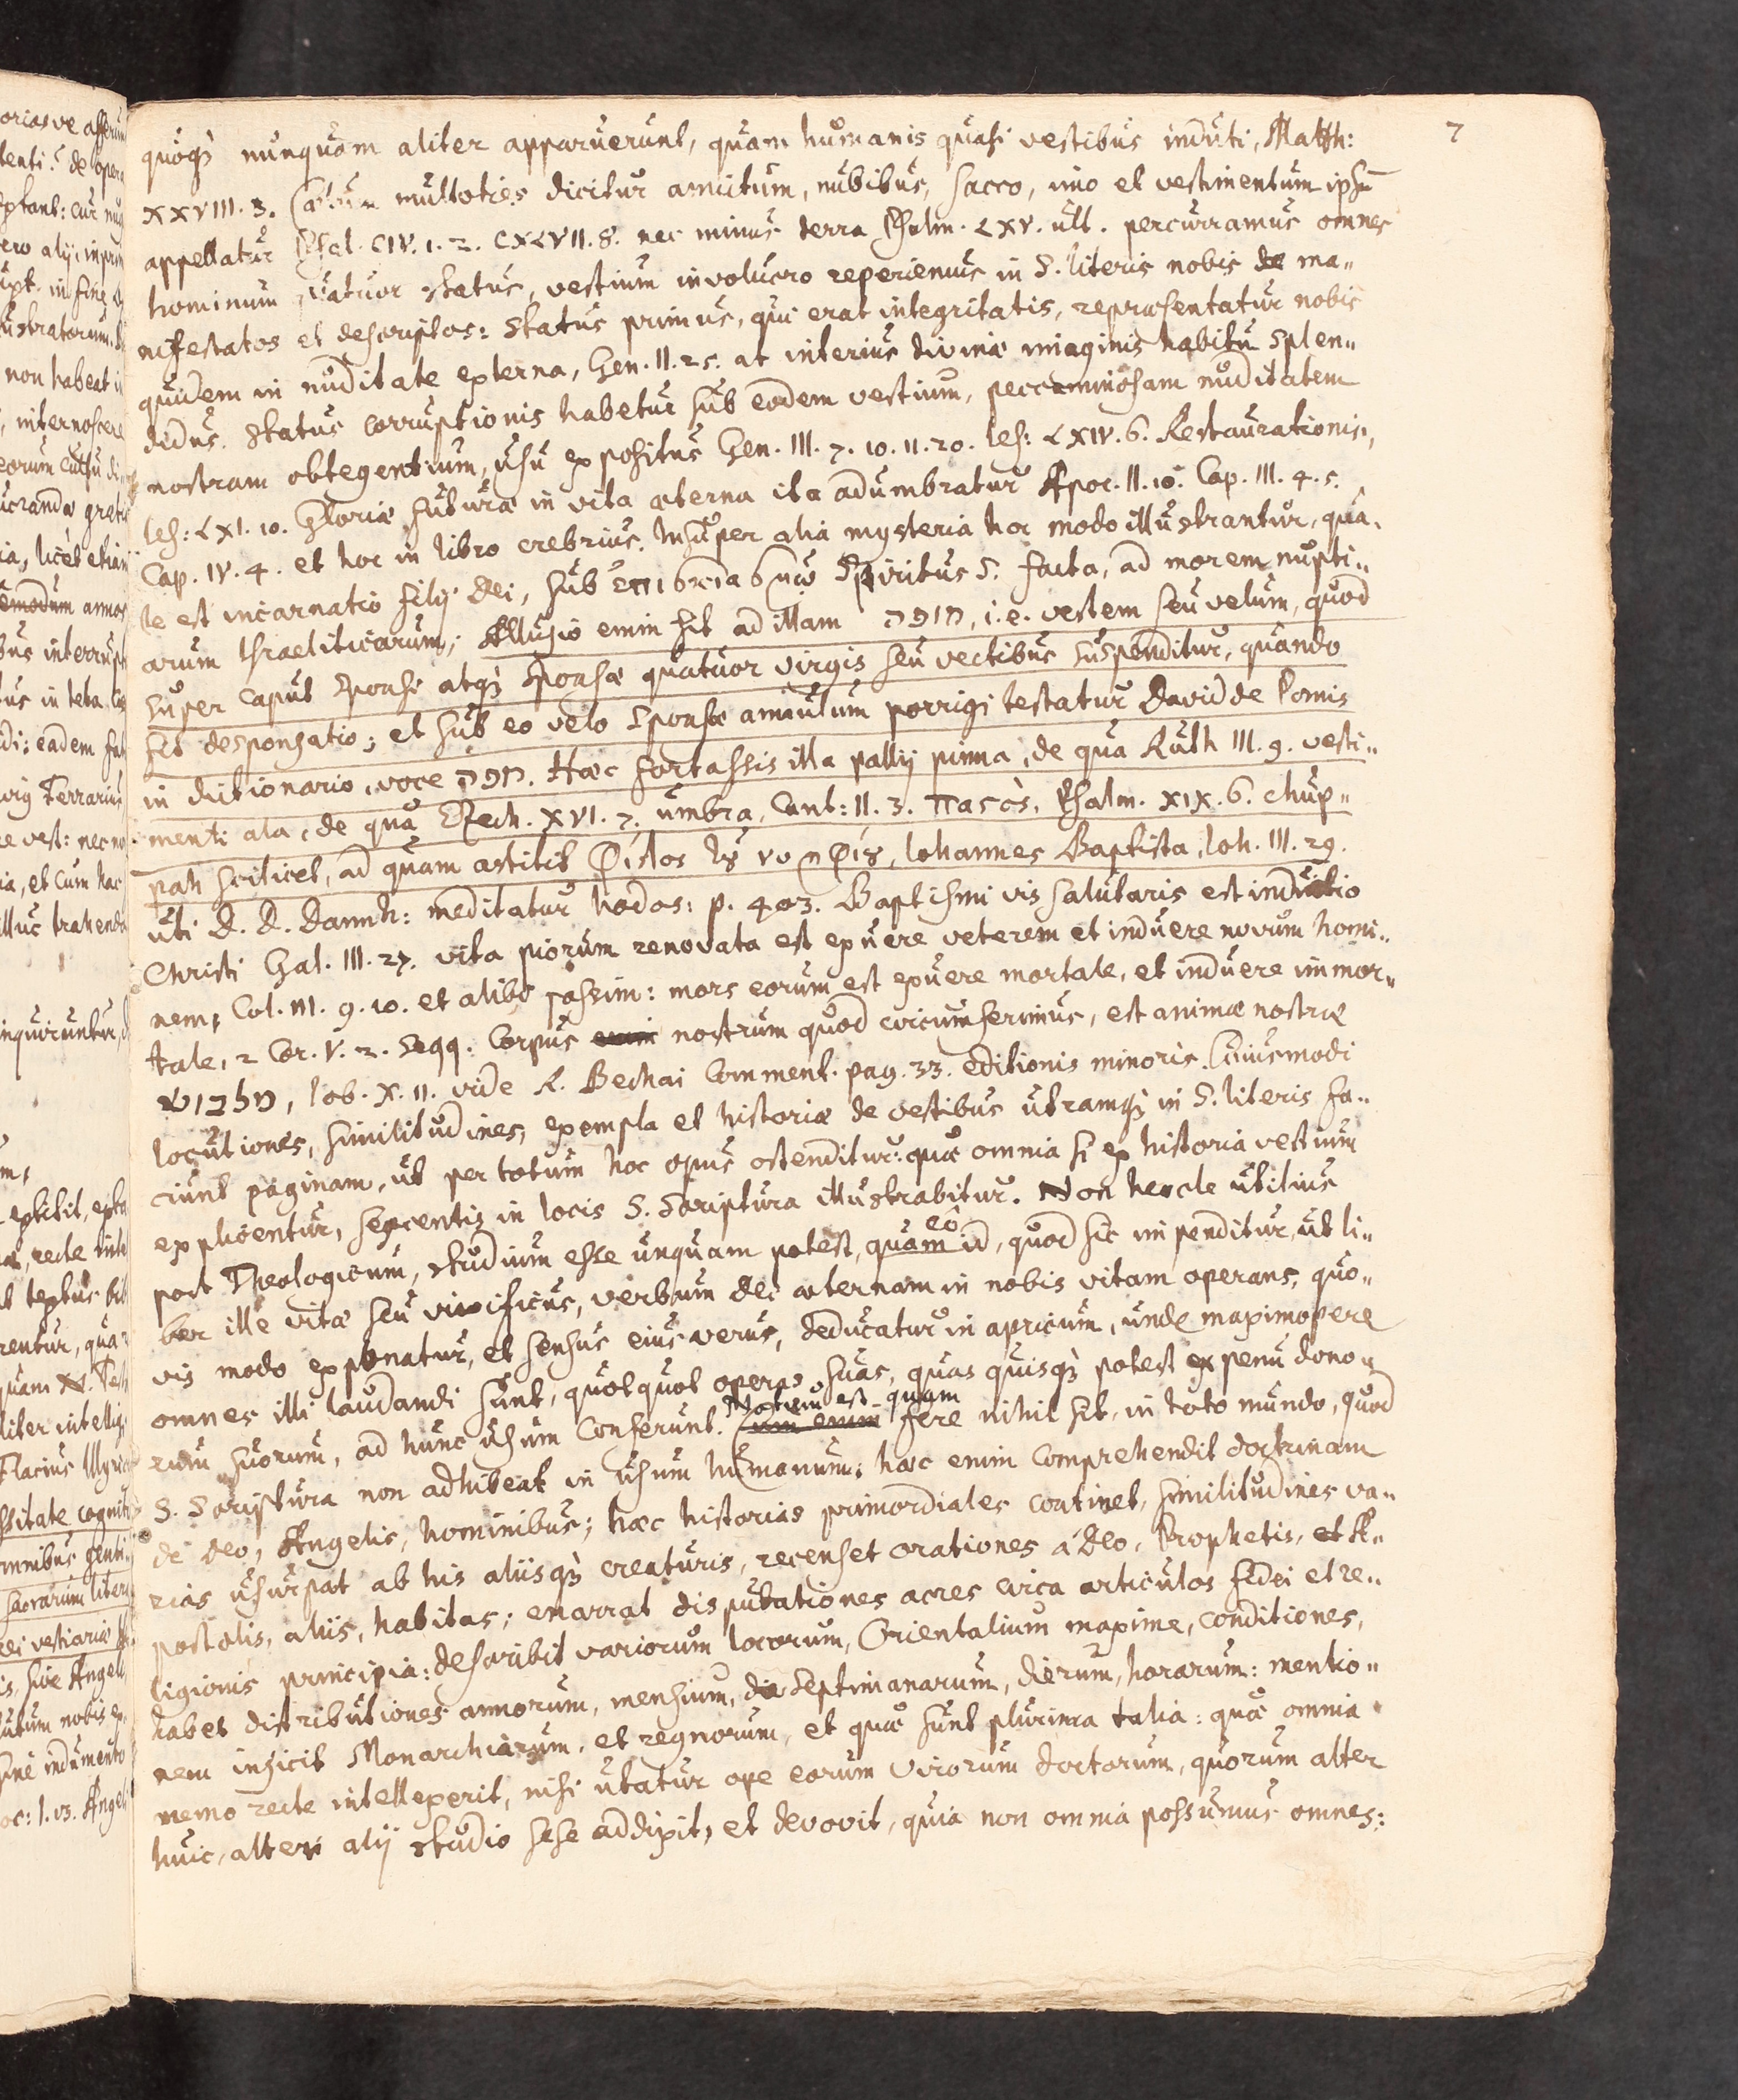 7
quoq꜕ nunquam aliter apparuerunt, quam humanis quasi vestibus induti, Matth:
XXVIII. 3. Cœlum multoties dicitur amictum, nubibus, sacco, imo et vestimentum ipsū
appellatur Psal. CIV. 1. 2. CXLVII. 8. nec minus terra Psalm. LXV. ult. percurramus omnes
hominum quatuor status, vestium involucro reperiemus in S. literis nobis de ma„
nifestatos et descriptos: Status primus, qui erat integritatis, repræsentatur nobis
quidem in nuditate externa, Gen. II. 25. at interius divinæ imaginis habitu splen„
didus. Status corruptionis habetur sub eodem vestium, peccaminosam nuditatem
nostram obtegentium, usu expositus Gen. III. 7. 10. 11. 20. Ies: LXIV. 6. Restaurationis,
Ies: LXI. 10. Gloriæ futuræ in vita æterna ita adumbratur Apoc. II. 10. Cap. III. 4. 5.
Cap. IV. 4. et hoc in libro crebrius. Insuper alia mysteria hoc modo illustrantur, qua„
le est incarnatio filij Dei, sub ἐπισκιασμῷ Spiritus S. facta, ad morem nupti„
arum Israeliticarum; Allusio enim fit ad illam חופה, i.e. vestem seu velum, quod
super caput Sponsi atq꜕ Sponsæ quatuor virgis seu vectibus suspenditur, quando
fit desponsatio; et sub eo velo Sponsæ annulum porrigi testatur David de Pomis
in dictionario, voce חפה. Hæc fortassis illa pallij pinna, de qua Ruth III. 9. vesti„
menti ala, de qua Ezech. XVI. 7. umbra, Cant: II. 3. παςὸς, Psalm. XIX. 6. chup„
pah scilicet, ad quam astitit φίλος τȣ̃ νυμφίȣ, Iohannes Baptista, Ioh. III. 29.
uti D. D. Dannh: meditatur hodos: p. 403. Baptismi vis salutaris est indutio
Christi Gal. III. 27. vita piorum renovata est exuere veterem et induere novum homi„
nem, Col. III. 9. 10. et alibi passim: mors eorum est exuere mortale, et induere immor„
tale, 2 Cor. V. 2. seqq. Corpus enim nostrum quod circumferimus, est animæ nostræ
מלבוש, Iob. X. 11. vide R. Bechai Comment. pag. 33. editionis minoris. Cuiusmodi
locutiones, similitudines, exempla et historiæ de vestibus utramq꜕ in S. literis fa„
ciunt paginam, ut per totum hoc opus ostenditur: quæ omnia si ex historia vestium
explicentur, sexcentis in locis S. Scriptura illustrabitur. Non hercle utilius
post Theologicum, studium esse unquam potest, quam eô id, quod sic impenditur, ut li„
ber ille vitæ seu vivificus, verbum Dei æternam in nobis vitam operans, quo„
vis modo exponatur, et sensus eius verus, deducatur in apricum, unde maximopere
omnes illi laudandi sunt, quotquot operas suas, quas quisq꜕ potest ex penu dono„
rum suorum, ad hunc usum conferunt. Notum est quam Cum enim fere nihil sit, in toto mundo, quod
S. Scriptura non adhibeat in usum humanum: hæc enim comprehendit doctrinam
de Deo, Angelis, hominibus; hæc historias primordiales continet, similitudines va„
rias usurpat ab his aliisq꜕ creaturis, recenset orationes á Deo, Prophetis, et A„
postolis, aliis, habitas; enarrat disputationes acres circa articulos fidei et re„
ligionis principia: describit variorum locorum, Orientalium maxime, conditiones,
habet distributiones annorum, mensium, die septimanarum, dierum, horarum: mentio„
nem injicit Monarchiarum, et regnorum, et quæ sunt plurima talia: quæ omnia
nemo recte intellexerit, nisi utatur ope eorum virorum doctorum, quorum alter
huic, alter alij studio sese addixit, et devovit, quia non omnia possumus omnes: